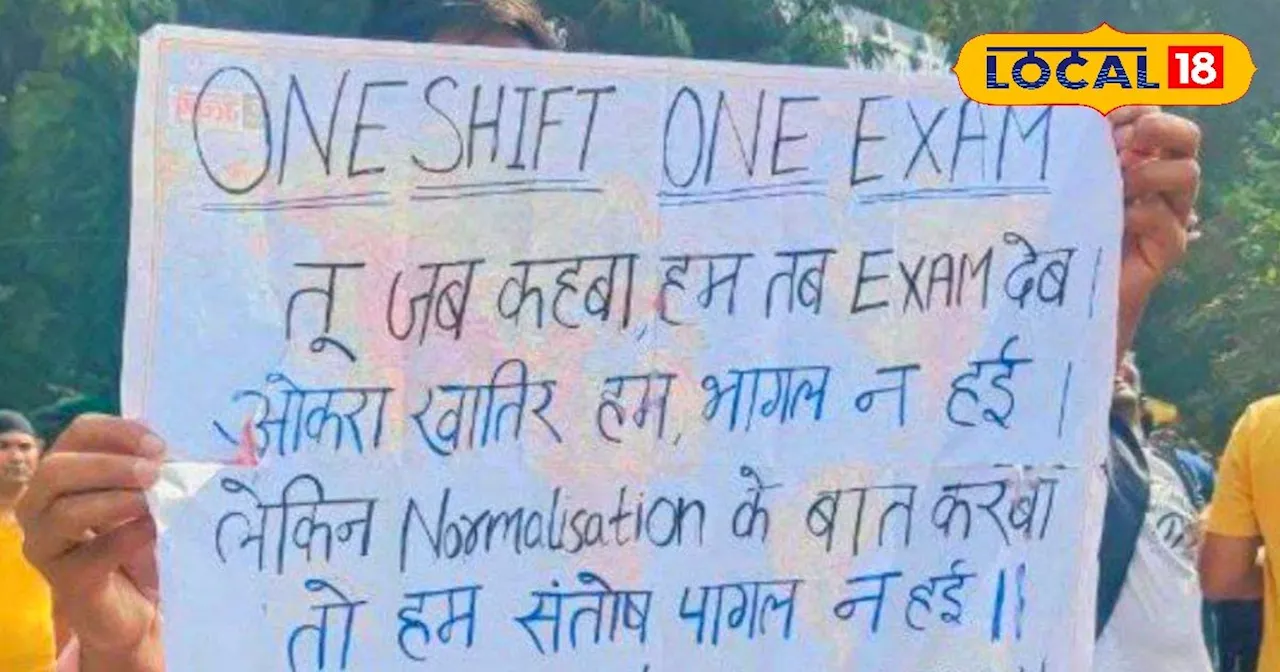 LOCAL 18
ONE SHIFT ONE EXAM
तू जब कहबा, हम तब EXAM देब।
ओकरा खातिर हम, भागल न हई।
लेकिन Normalisation के बात करबा
तो हम संतोष पागल न हई॥